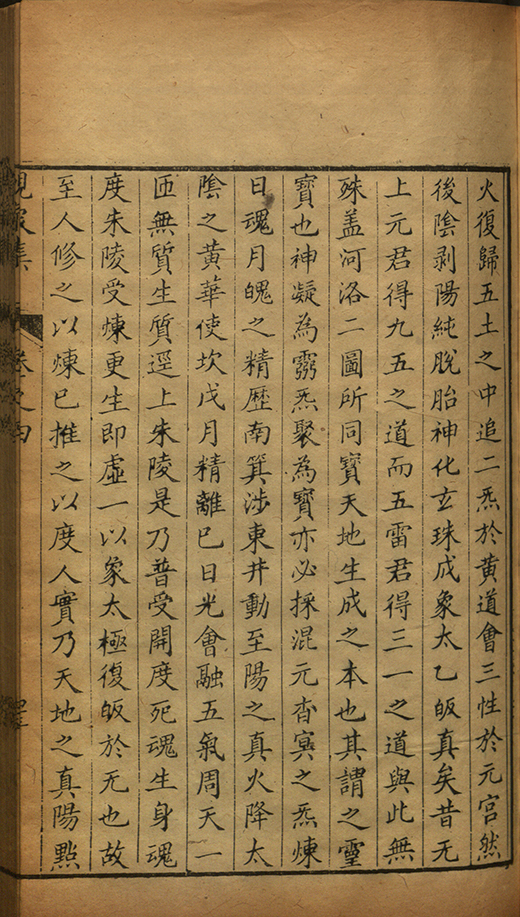 火復歸五土之中追二炁於黄道會三性於元宮然
後陰剥陽純脫胎神化玄珠成象太乙皈真矣昔无
上元君得九五之道而五雷君得三一之道與此無
殊盖河洛二圖所同寶天地生成之本也其謂之靈
寶也神凝為靈炁聚為寶亦必採混元杳冥之炁煉
日魂月魄之精歷南箕涉東井動至陽之真火降太
陰之黄華使坎戊月精離巳日光會融五氣周天一
匝無質生質逕上朱陵是乃普受開度死魂生身魂
度朱陵受煉更生即虛一以象太極復皈於无也故
至人修之以煉巳推之以度人實乃天地之真陽點